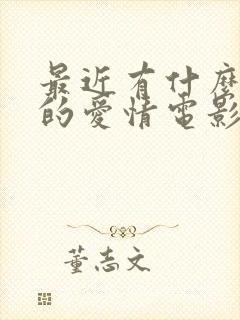 最近有什麼
的愛情電影
董志文